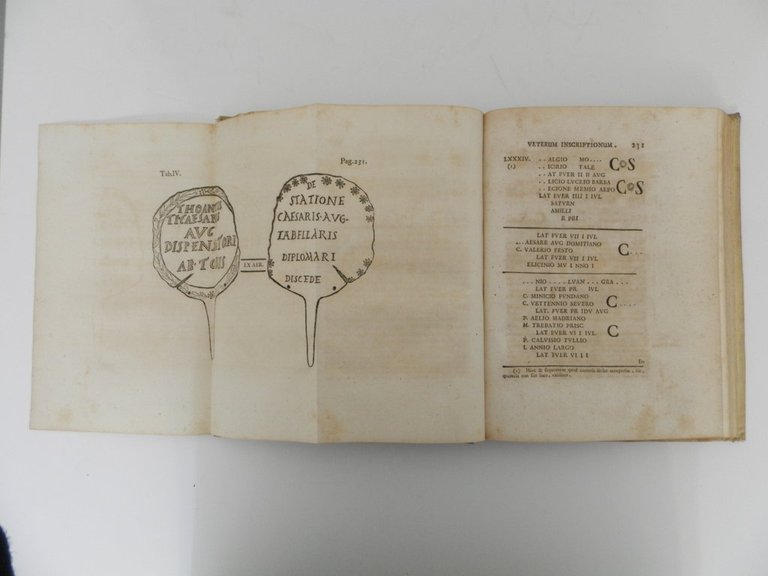 Tab.IV.
Pag.231.
THOANTI
TI·CAESARIS
AVG
DISPENSATORI
EX AER.
DE
STATIONE
CAESARIS·AVG·
TABELLARIS
DIPLOMARI
DISCEDE
VETERUM INSCRIPTIONUM. 231
LXXXIV. . . ALGIO MO....
(1) . . ICIRIO TALE COS
. . AT FVER II II AVG
. . LICIO LVCEIO BARBA
. . ECIONE MEMIO AEPO COS
LAT FVER IIII I IVL
SATVRN
AMILLI
R PRI
LAT FVER VII I IVL
...AESARE AVG DOMITIANO
C. VALERIO FESTO C...
LAT FVER VII I IVL
ELICINIO MV I NNO I
...NIO....LVAN..GRA...
LAT FVER PR IVL
C. MINICIO FVNDANO
C. VETTENNIO SEVERO C
LAT. FVER PR IDV AVG
P. AELIO HADRIANO
M. TREBATIO PRISC C
LAT FVER VI I IVL
P. CALVISIO TVLLIO
L ANNIO LARGO
LAT FVER VI I I